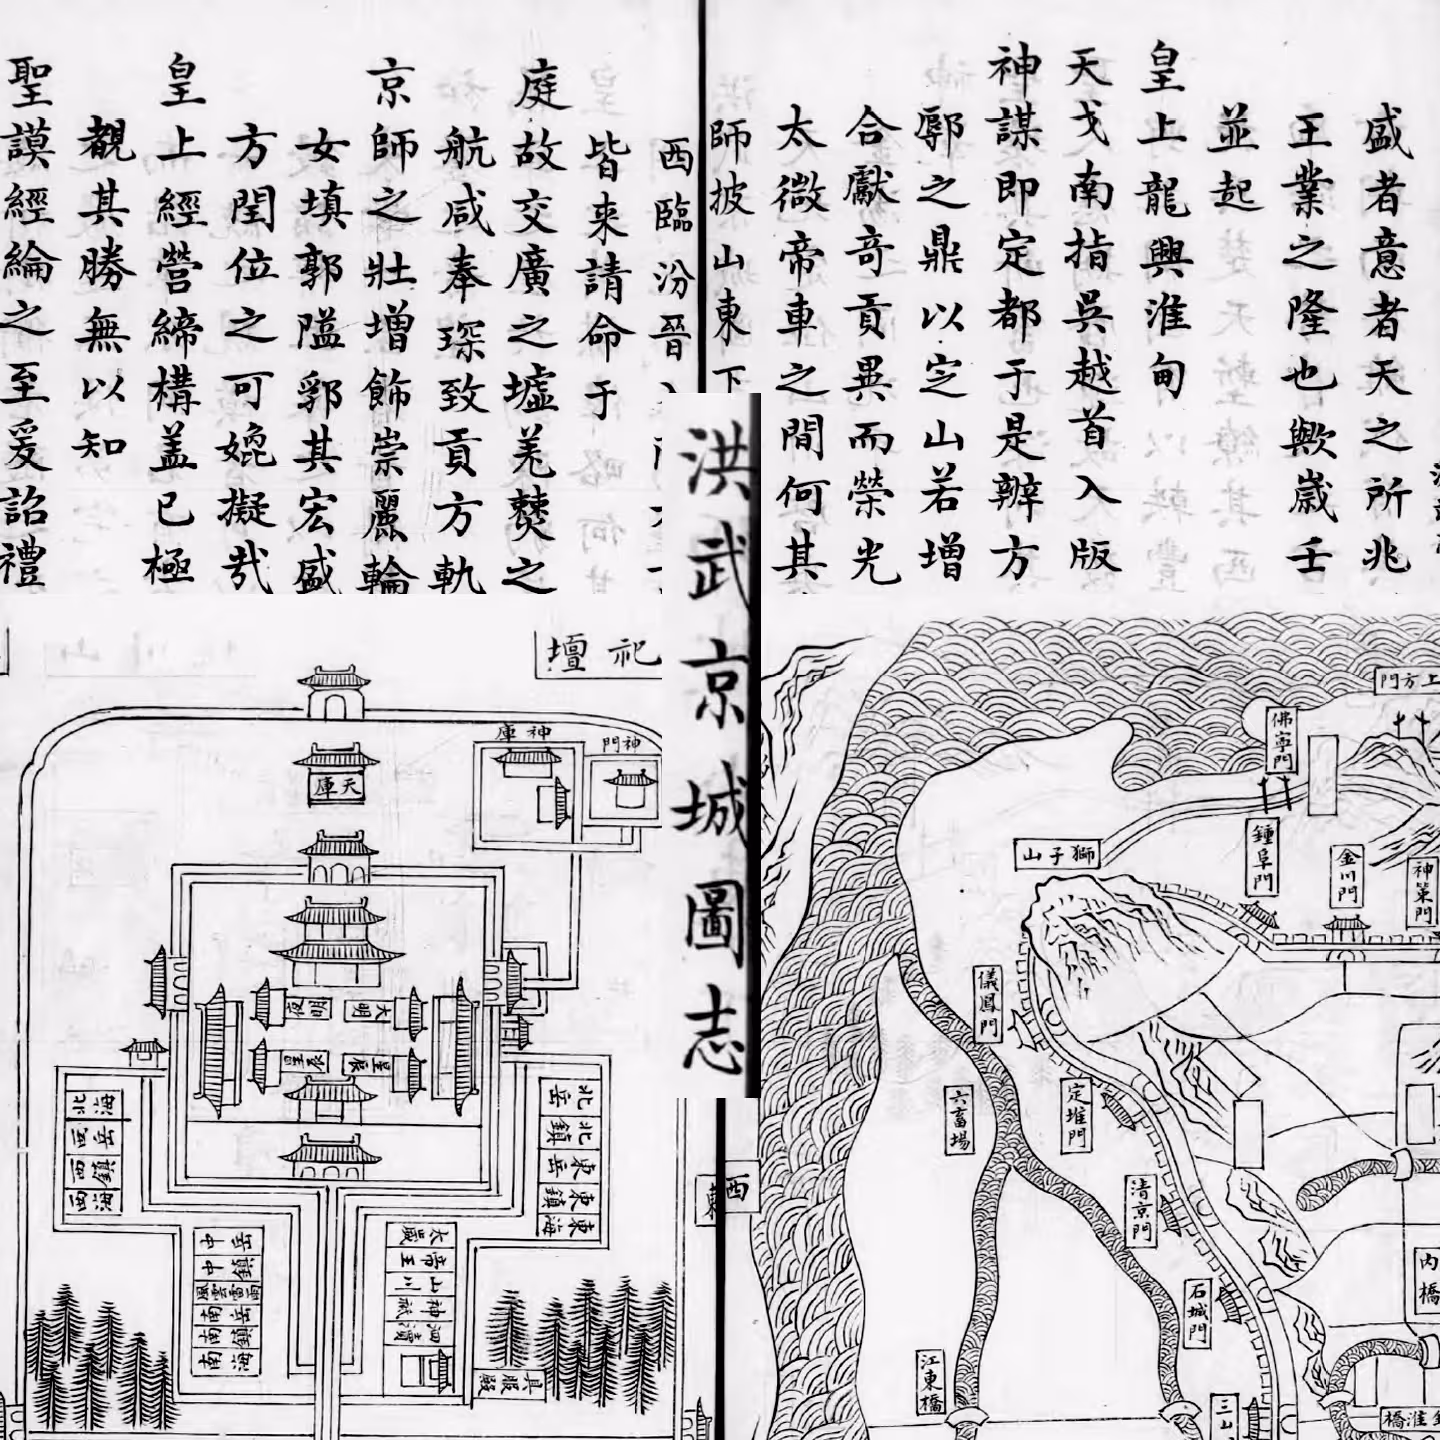 盛者意者天之所兆
王業之隆也歟歲壬
並起
皇上龍興淮甸
天戈南指吳越首入版
神謀即定都于是辨方
鄹之鼎以定山若增
合獻竒貢異而榮光
太微帝車之間何其
師披山東下
西臨汾晉
皆來請命于
庭故交廣之墟羗僰之
航咸奉琛致貢方軌
京師之壯增飾崇麗輪
女填郭隘郛其宏盛
方閏位之可媲擬㢤
皇上經營締構盖已極
覩其勝無以知
聖謨經綸之至爰詔禮
洪武京城圖志
祀壇
神庫
神門
天庫
大明
夜明
星辰
星辰
北海
西岳
西鎮
西海
北岳
北鎮
東岳
東鎮
東海
中岳
中鎮
風雲雷雨
南岳
南鎮
南海
太歲
帝王
山川
神祇
四瀆
具服殿
西
東
上方門
佛寧門
獅子山
鍾阜門
金川門
神策門
儀鳳門
定淮門
六畜場
清京門
石城門
江東橋
三山
內橋
淮橋